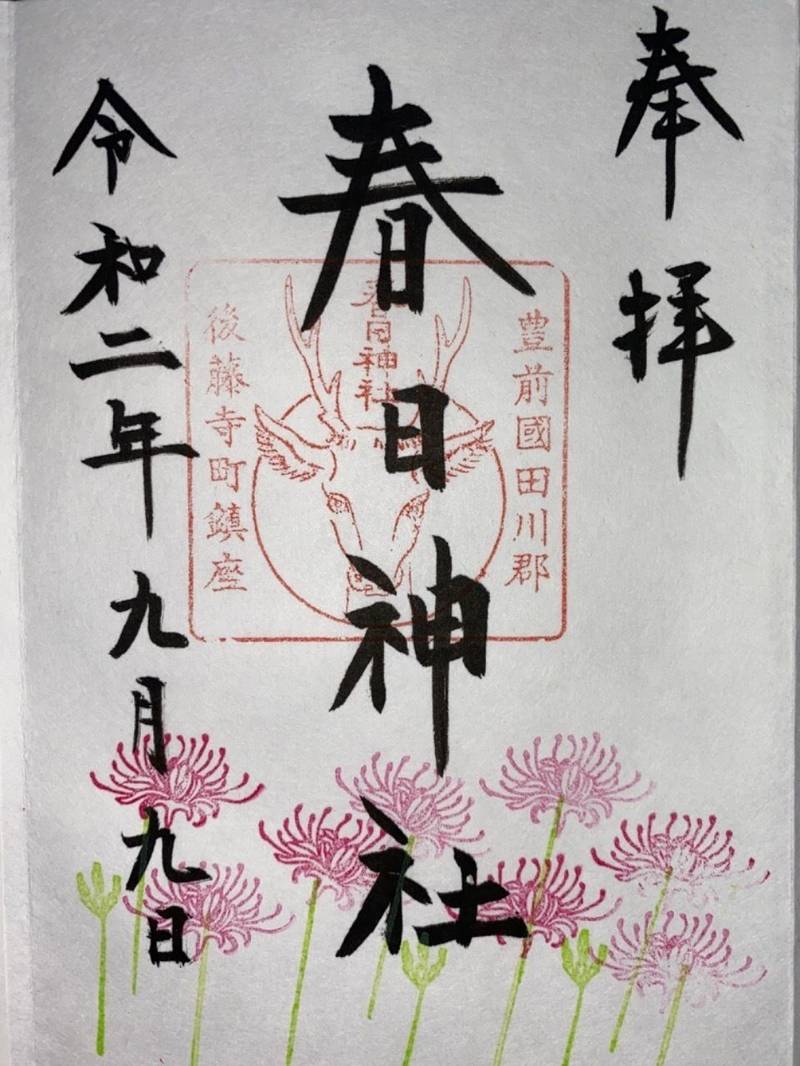 奉拝
豊前國田川郡
春日神社
春日神社
後藤寺町鎮座
令和二年九月九日